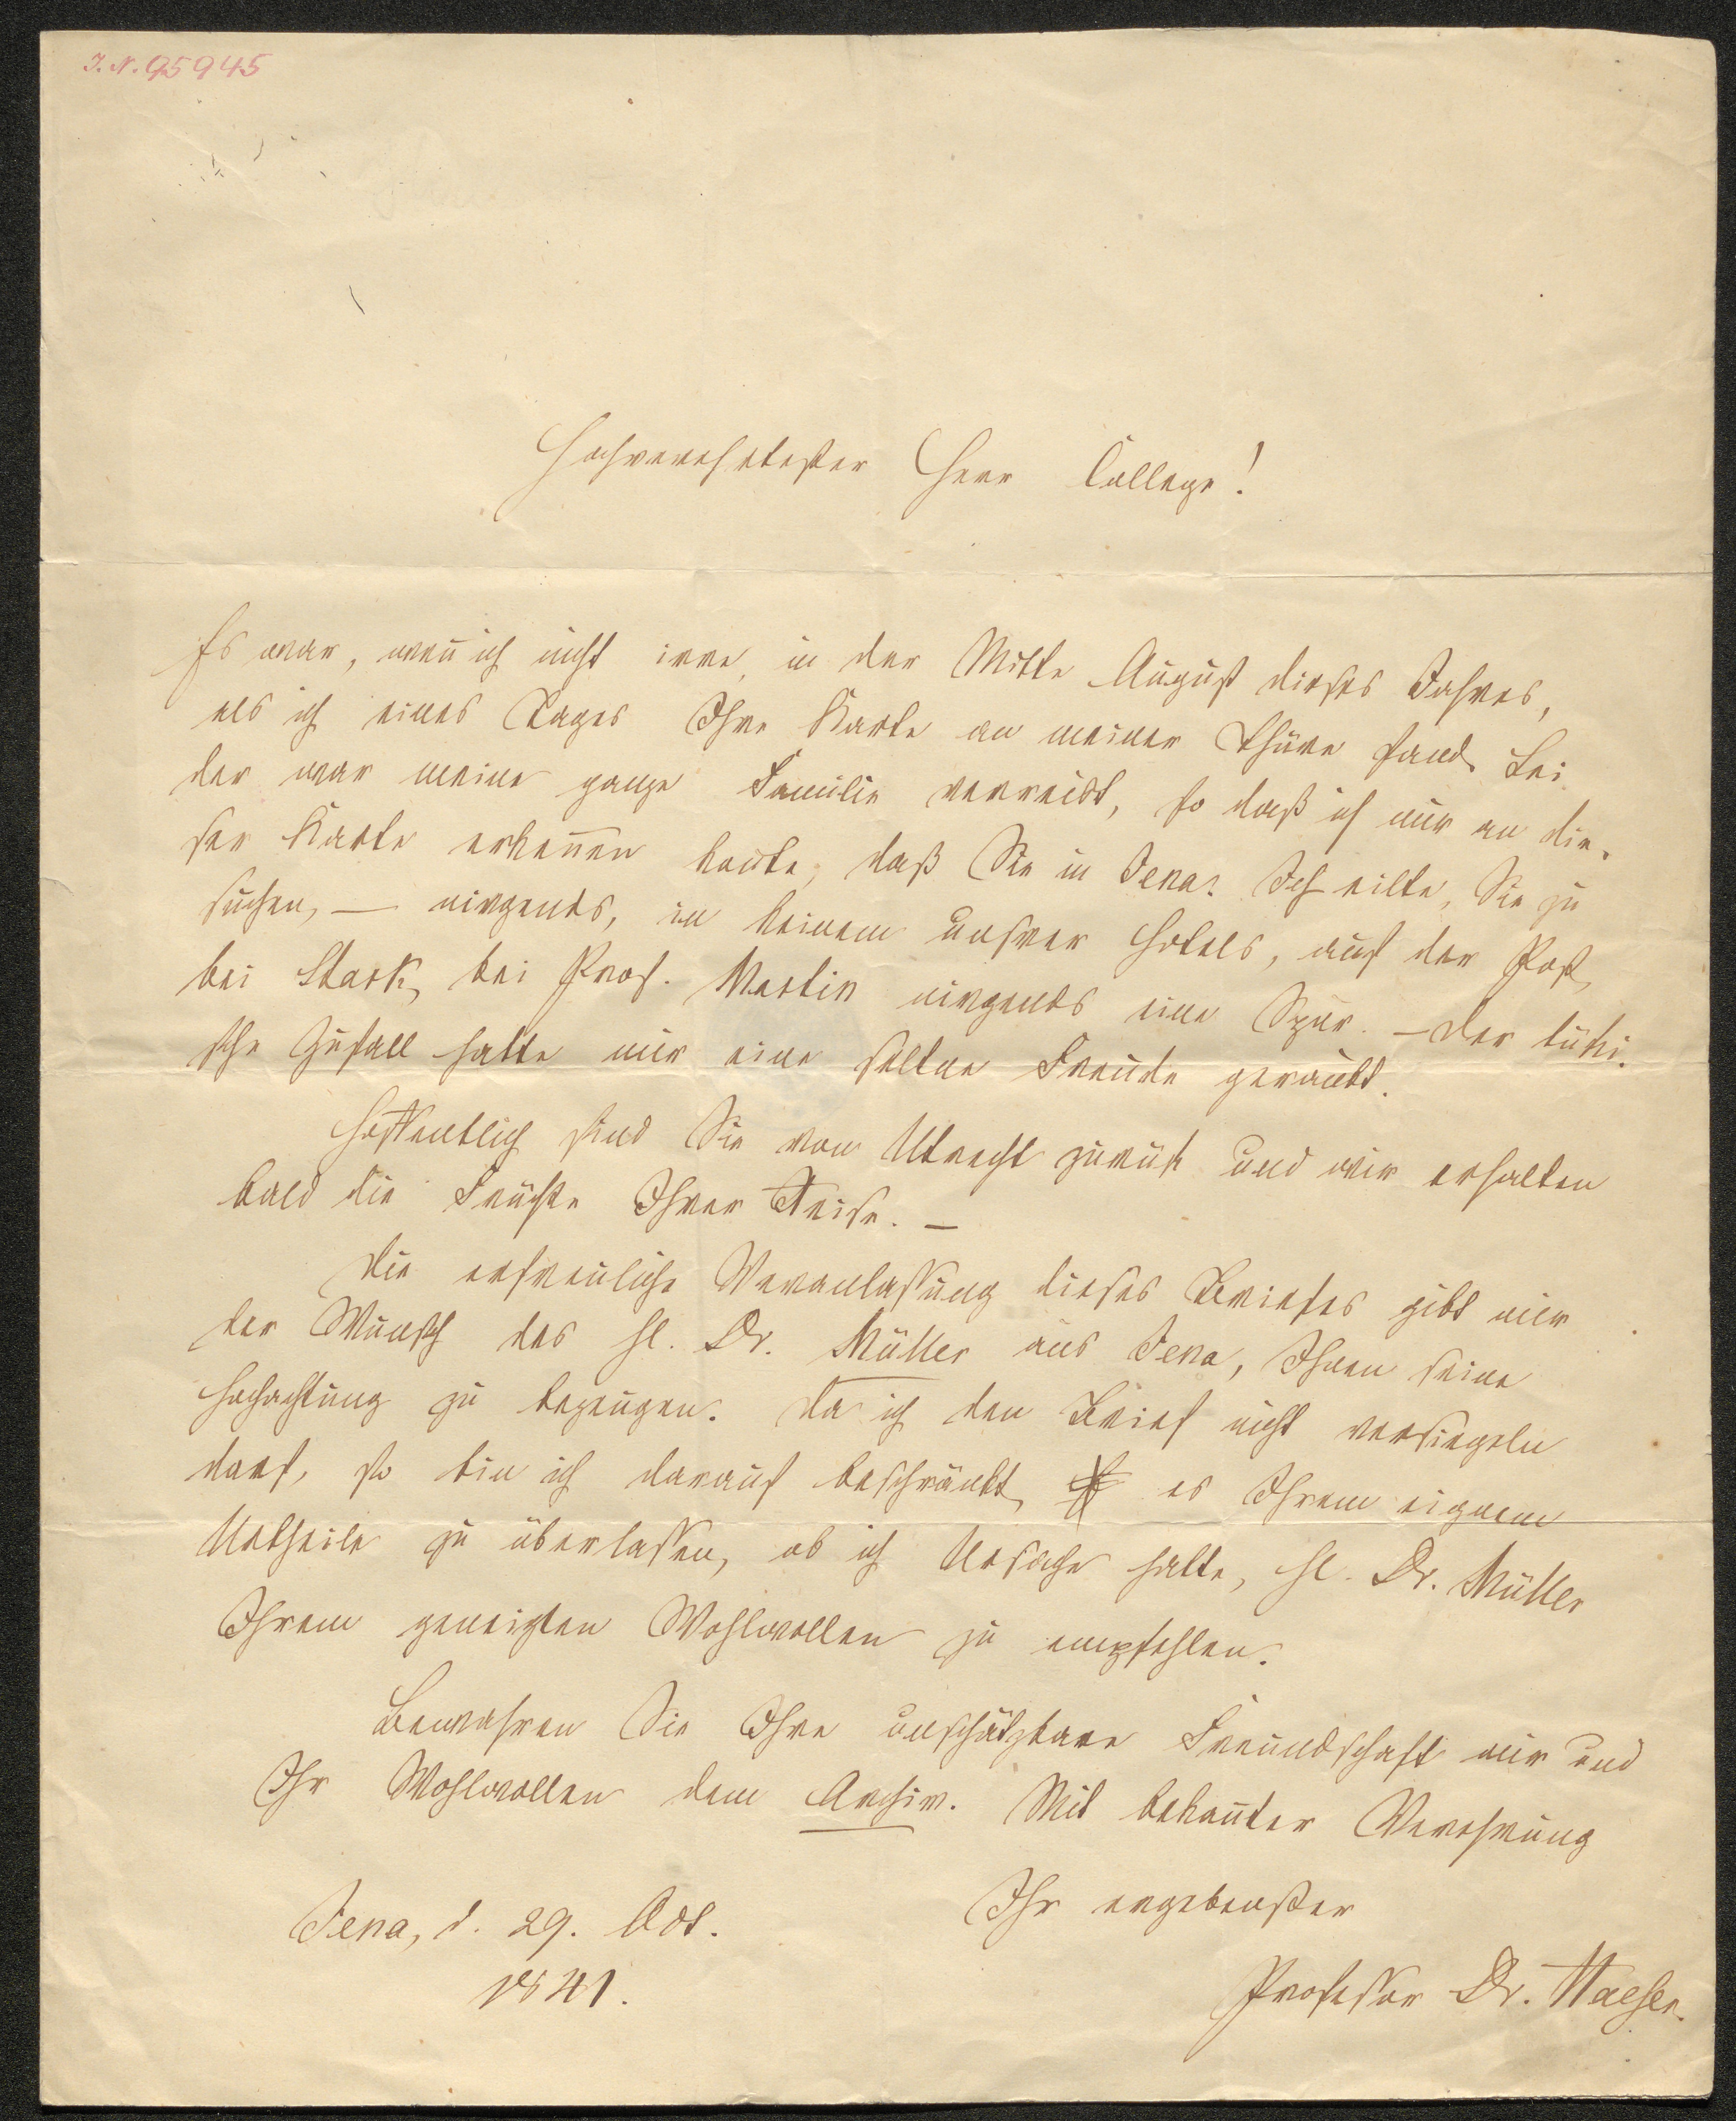 I. N. 95945
Hochverehrtester Herr College!
Es war, wen̄ ich nicht irre, in der Mitte August dieses Jahres,
als ich eines Tages Ihre Karte an meiner Thüre fand. Lei
der war meine ganze Familie verreist, so daß ich nur an die-
ser Karte erken̄en kon̄te, daß Sie in Jena. Ich eilte, Sie zu
suchen, — nirgends, in keinem unsrer Hotels, auf der Post,
bei Stark, bei Prof. Martin nirgends eine Spur. — Der tücki-
sche Zufall hatte mir eine seltne Freude geraubt.
Hoffentlich sind Sie von Utrecht zurück und wir erhalten
bald die Früchte Ihrer Reise. —
Die erfreuliche Veranlassung dieses Briefes gibt mir
der Wunsch des H. Dr. Müller aus Jena, Ihnen seine
Hochachtung zu bezeugen. Da ich den Brief nicht versiegeln
darf, so bin ich darauf beschränkt, es Ihrem eignem
Urtheile zu überlassen, ob ich Ursache hatte, H. Dr. Müller
Ihrem geneigten Wohlwollen zu empfehlen.
Bewahren Sie Ihre unschätzbare Freundschaft mir und
Ihr Wohlwollen dem Archiv. Mit bekan̄ter Verehrung
Ihr ergebenster
Jena, d. 29. Oct.
1841.
Professor Dr. Haeser.